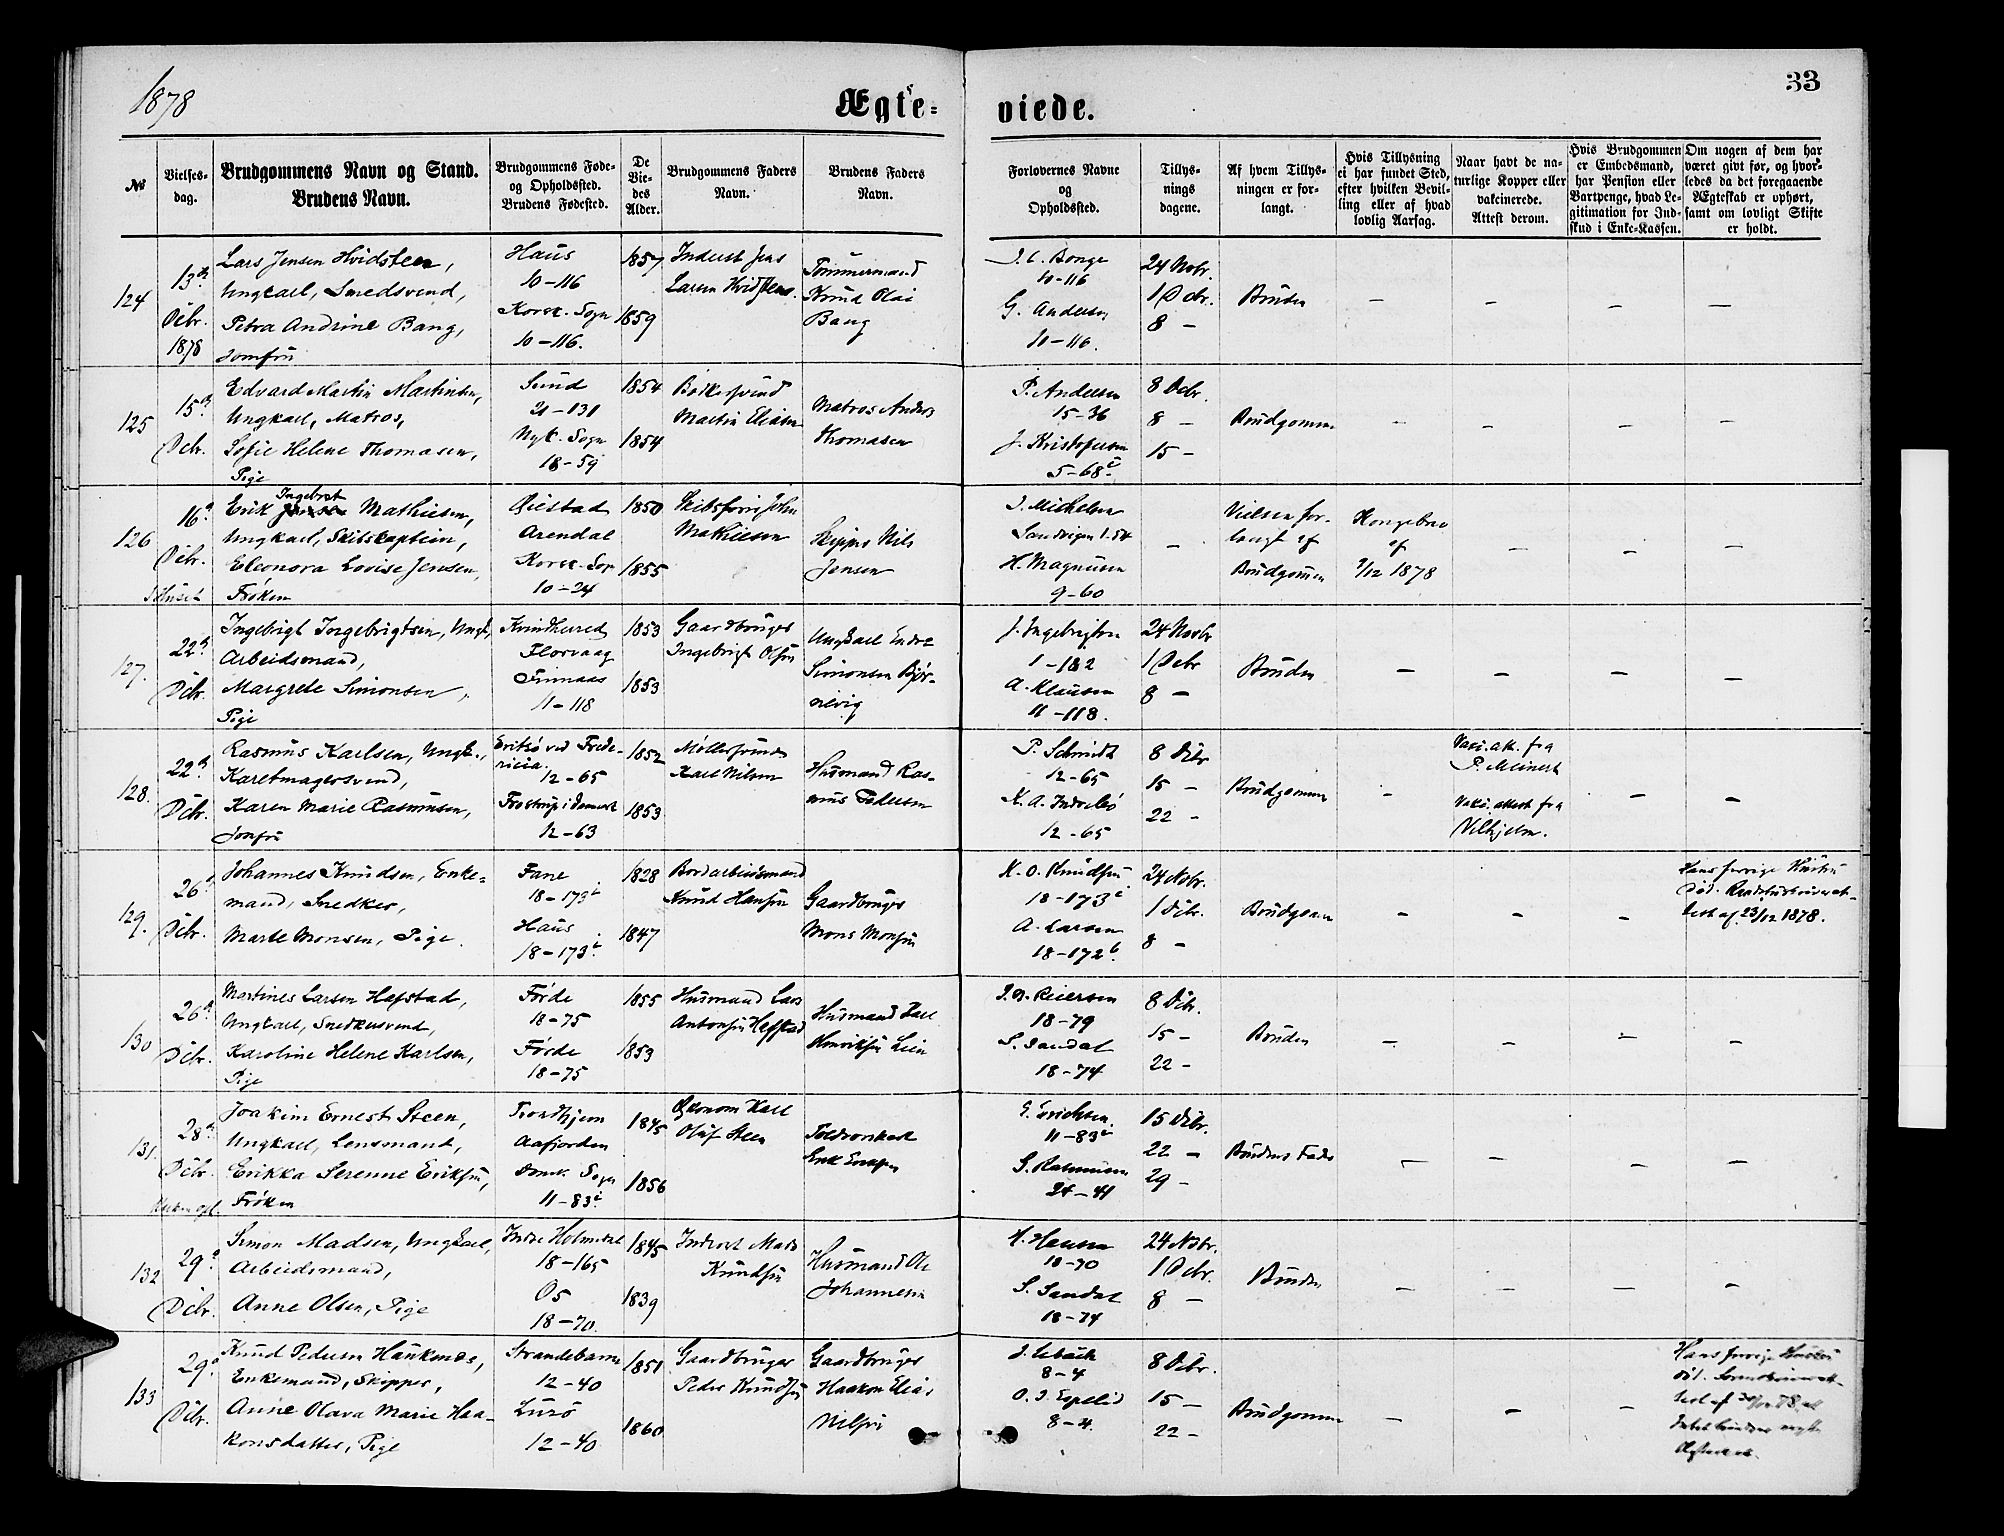 1878
Ægte-
viede.
33
№
Vielses-
dag.
Brudgommens Navn og Stand.
Brudens Navn.
Brudgommens Føde-
og Opholdssted.
Brudens Fødested.
De
Vie-
des
Alder.
Brudgommens Faders
Navn.
Brudens Faders
Navn.
Forlovernes Navne
og
Opholdssted.
Tillys-
nings
dagene.
Af hvem Tillys-
ningen er for-
langt.
Hvis Tillysning
ei har fundet Sted,
efter hvilken Bevil-
ling eller af hvad
lovlig Aarsag.
Naar havt de na-
turlige Kopper eller
vakcinerede.
Attest derom.
Hvis Brudgommen
er Embedsmand,
har Pension eller
Vartpenge, hvad Le-
gitimation for Ind-
skud i Enke-Kassen.
Om nogen af dem har
været givt før, og hvor-
ledes da det foregaaende
Ægteskab er ophørt,
samt om lovligt Skifte
er holdt.
124
13de
Dcbr.
1878
Lars Jensen Hvidsteen,
Ungkarl, Smedsvend,
Petra Andrine Bang,
Jomfru
Haus
10-116
Korsk. Sogn
10-116.
1857
1859
Inderst Jens
Larsen Hvidsteen.
Tømmermand
Knud Olai
Bang
10-116
G. Andersen
10-116.
24 Novbr.
1 Dcbr.
8 -
Bruden
125
15de
Dcbr.
Edvard Martin Martinsen,
Ungkarl, Matros,
Sofie Helene Thomasen,
Pige
Sund
21-131
Nyk. Sogn
18-59
1854
1854
Bødkersvend
Martin Eliasen
Matros Anders
Thomasen
P. Andersen
15-36
J. Kristofersen
5-68
8 Dcbr.
8 -
15 -
Brudgommen
126
16de
Dcbr.
i Huset
Erik Ingebret Mathiesen,
Ungkarl, Skibskaptein,
Eleonora Lovise Jensen,
Frøken
Øiestad
Arendal
Korsk. Sogn
10-24
1850
1855
Skibsfører John
Mathiesen
Skipper Nils
Jensen
J. Michelsen
Sandvigen 1-54
H. Magnusen
9-60
Vielsen for-
langt af
Brudgommen
Kongebrev
af
7/12 1878
127.
22de
Dcbr.
Ingebrigt Ingebrigtsen, Ungk.,
Arbeidsmand,
Margrete Simonsen,
Pige
Kvindherred
Florvaag
11-118
1853
1853
Gaardbruger
Ingebrigt Olsen
Ungkarl Endre
Simonsen Bjør-
nevig
J. Ingebrigtsen
1-182
A. Klausen
11-118.
24 Novbr
1 Dcbr
8 -
Bruden
128.
22de
Dcbr.
Rasmus Karlsen, Ungk.,
Karetmagersvend,
Karen Marie Rasmusen,
Jomfru
Eritsø ved Frede-
ricia.
12-65
Frostrup i Danmark
12-63
1852
1853
Møllersvend
Karl Nilsen
Husmand Ras-
mus Pedersen
P. Schmidt
12-65
12-65
8 Dcbr
15 -
22 -
Brudgommen
Vakc. att. fra
P. Meinert
Vakc. attest fra
Vilhjelm.
129.
26de
Dcbr.
Johannes Knudsen, Enke-
mand, Snedker,
Marte Monsen, Pige.
Fane
18-173
Haus
18-173
1828
1847
Bordarbeidsmand
Knud Hansen
Gaardbruger
Mons Monsen
K. O. Knudsen
18-173
A. Larsen
18-172b.
24 Nvbr.
1 Dcbr.
8 -
Brudgommen
Hans forrige Hustru
død. Raadstueskriverat-
test af 23/12 1878.
130
26de
Dcbr.
Martines Larsen Hafstad,
Ungkarl, Snedkersvend,
Karoline Helene Karlsen,
Pige
Førde
18-75
Førde
18-75
1855
1853
Husmand Lars
Antonsen Hafstad
Husmand Karl
Henriksen Lein
18-79
S. Sandal
18-74
8 Dcbr.
15 -
22 -
Bruden
131.
28de
Dcbr.
Joakim Ernest Steen,
Ungkarl, Lensmand,
Erikka Serenne Eriksen,
Frøken
Trondhjem
Aafjorden
Domk. Sogn
11-83
1845
1856
Økonom Karl
Oluf Steen
G. Erichsen
11-83
G. Rasmusen
24-41
15 Dcbr.
22 -
29 -
Brudens Fader
132
29de
Dcbr.
Simon Madsen, Ungkarl,
Arbeidsmand,
Anne Olsen, Pige
Indre Holmedal
18-165
Os
18-70.
1845
1839
Inderst Mads
Knudsen
Husmand Ole
Johannesen
H. Hansen
18-70
S. Sandal
18-74
24 Nvbr.
1 Dcbr.
8 -
Bruden
133
29de
Dcbr.
Knud Pedersen Haukenæs,
Enkemand, Skipper,
Anne Olava Marie Haa-
konsdatter, Pige
Strandebarm
12-40
Lurø
12-40
1851
1860
Gaardbruger
Peder Knudsen
Gaardbruger
Haakon Elias
Nilsen
8-4
O. J. Espelid
8-4
8 Dcbr.
15 -
22 -
Brudgommen
Hans forrige Hustru
død.